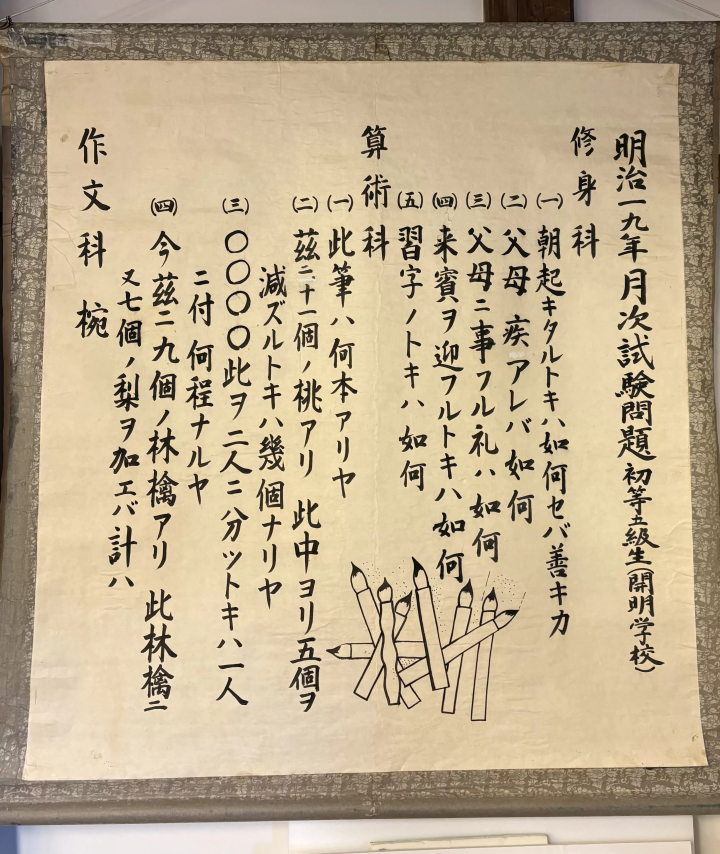 明治一九年月次試験問題 初等五級生(開明学校)
修身科
(一) 朝起キタルトキハ如何セバ善キカ
(二) 父母疾アレバ如何
(三) 父母ニ事フル礼ハ如何
(四) 来賓ヲ迎フルトキハ如何
(五) 習字ノトキハ如何
算術科
(一) 此筆ハ何本アリヤ
(二) 茲ニ十一個ノ桃アリ 此中ヨリ五個ヲ
減ズルトキハ幾個ナリヤ
(三) 〇〇〇〇此ヲ二人ニ分ツトキハ一人
ニ付何程ナルヤ
(四) 今茲ニ九個ノ林檎アリ 此林檎ニ
又七個ノ梨ヲ加エバ計ハ
作文科 椀